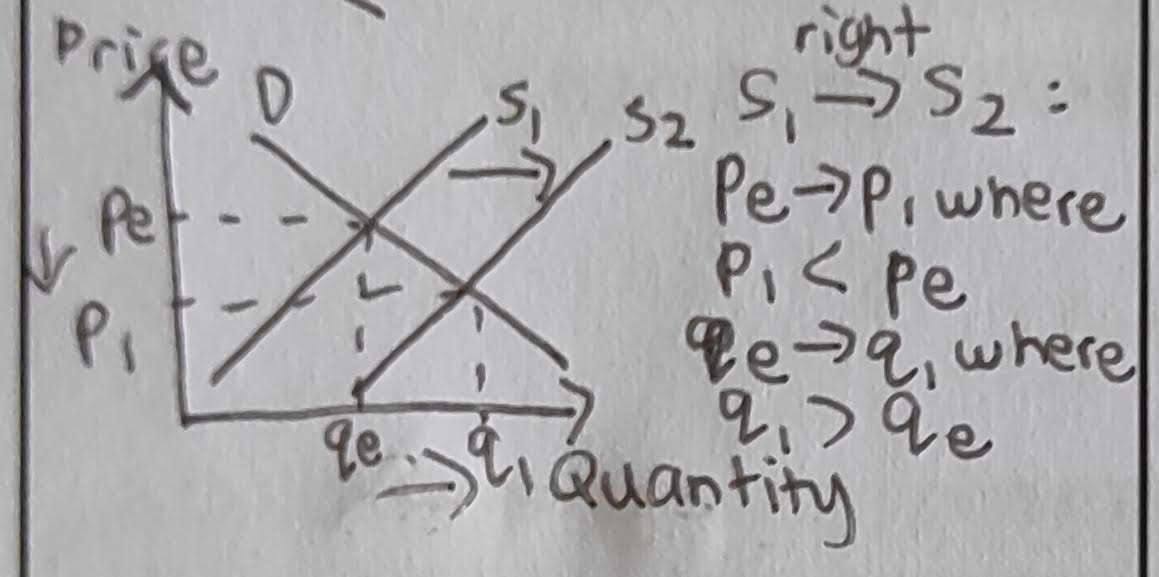 Price
D
S₁
S₂
Pe
P₁
qe
q₁
Quantity
right
S₁ → S₂ :
Pe → P₁ where
P₁ < Pe
qe → q₁ where
q₁ > qe